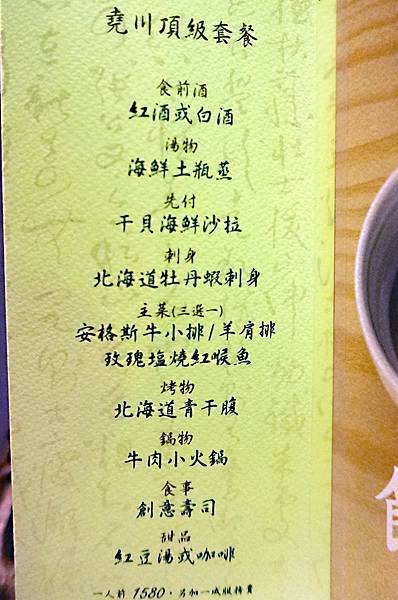 堯川頂級套餐
食前酒
紅酒或白酒
湯物
海鮮土瓶蒸
先付
干貝海鮮沙拉
刺身
北海道牡丹蝦刺身
主菜(三選一)
安格斯牛小排/羊肩排
玫瑰塩燒紅喉魚
烤物
北海道青干腹
鍋物
牛肉小火鍋
食事
創意壽司
甜品
紅豆湯或咖啡
一人前 1580,另加一成服務費